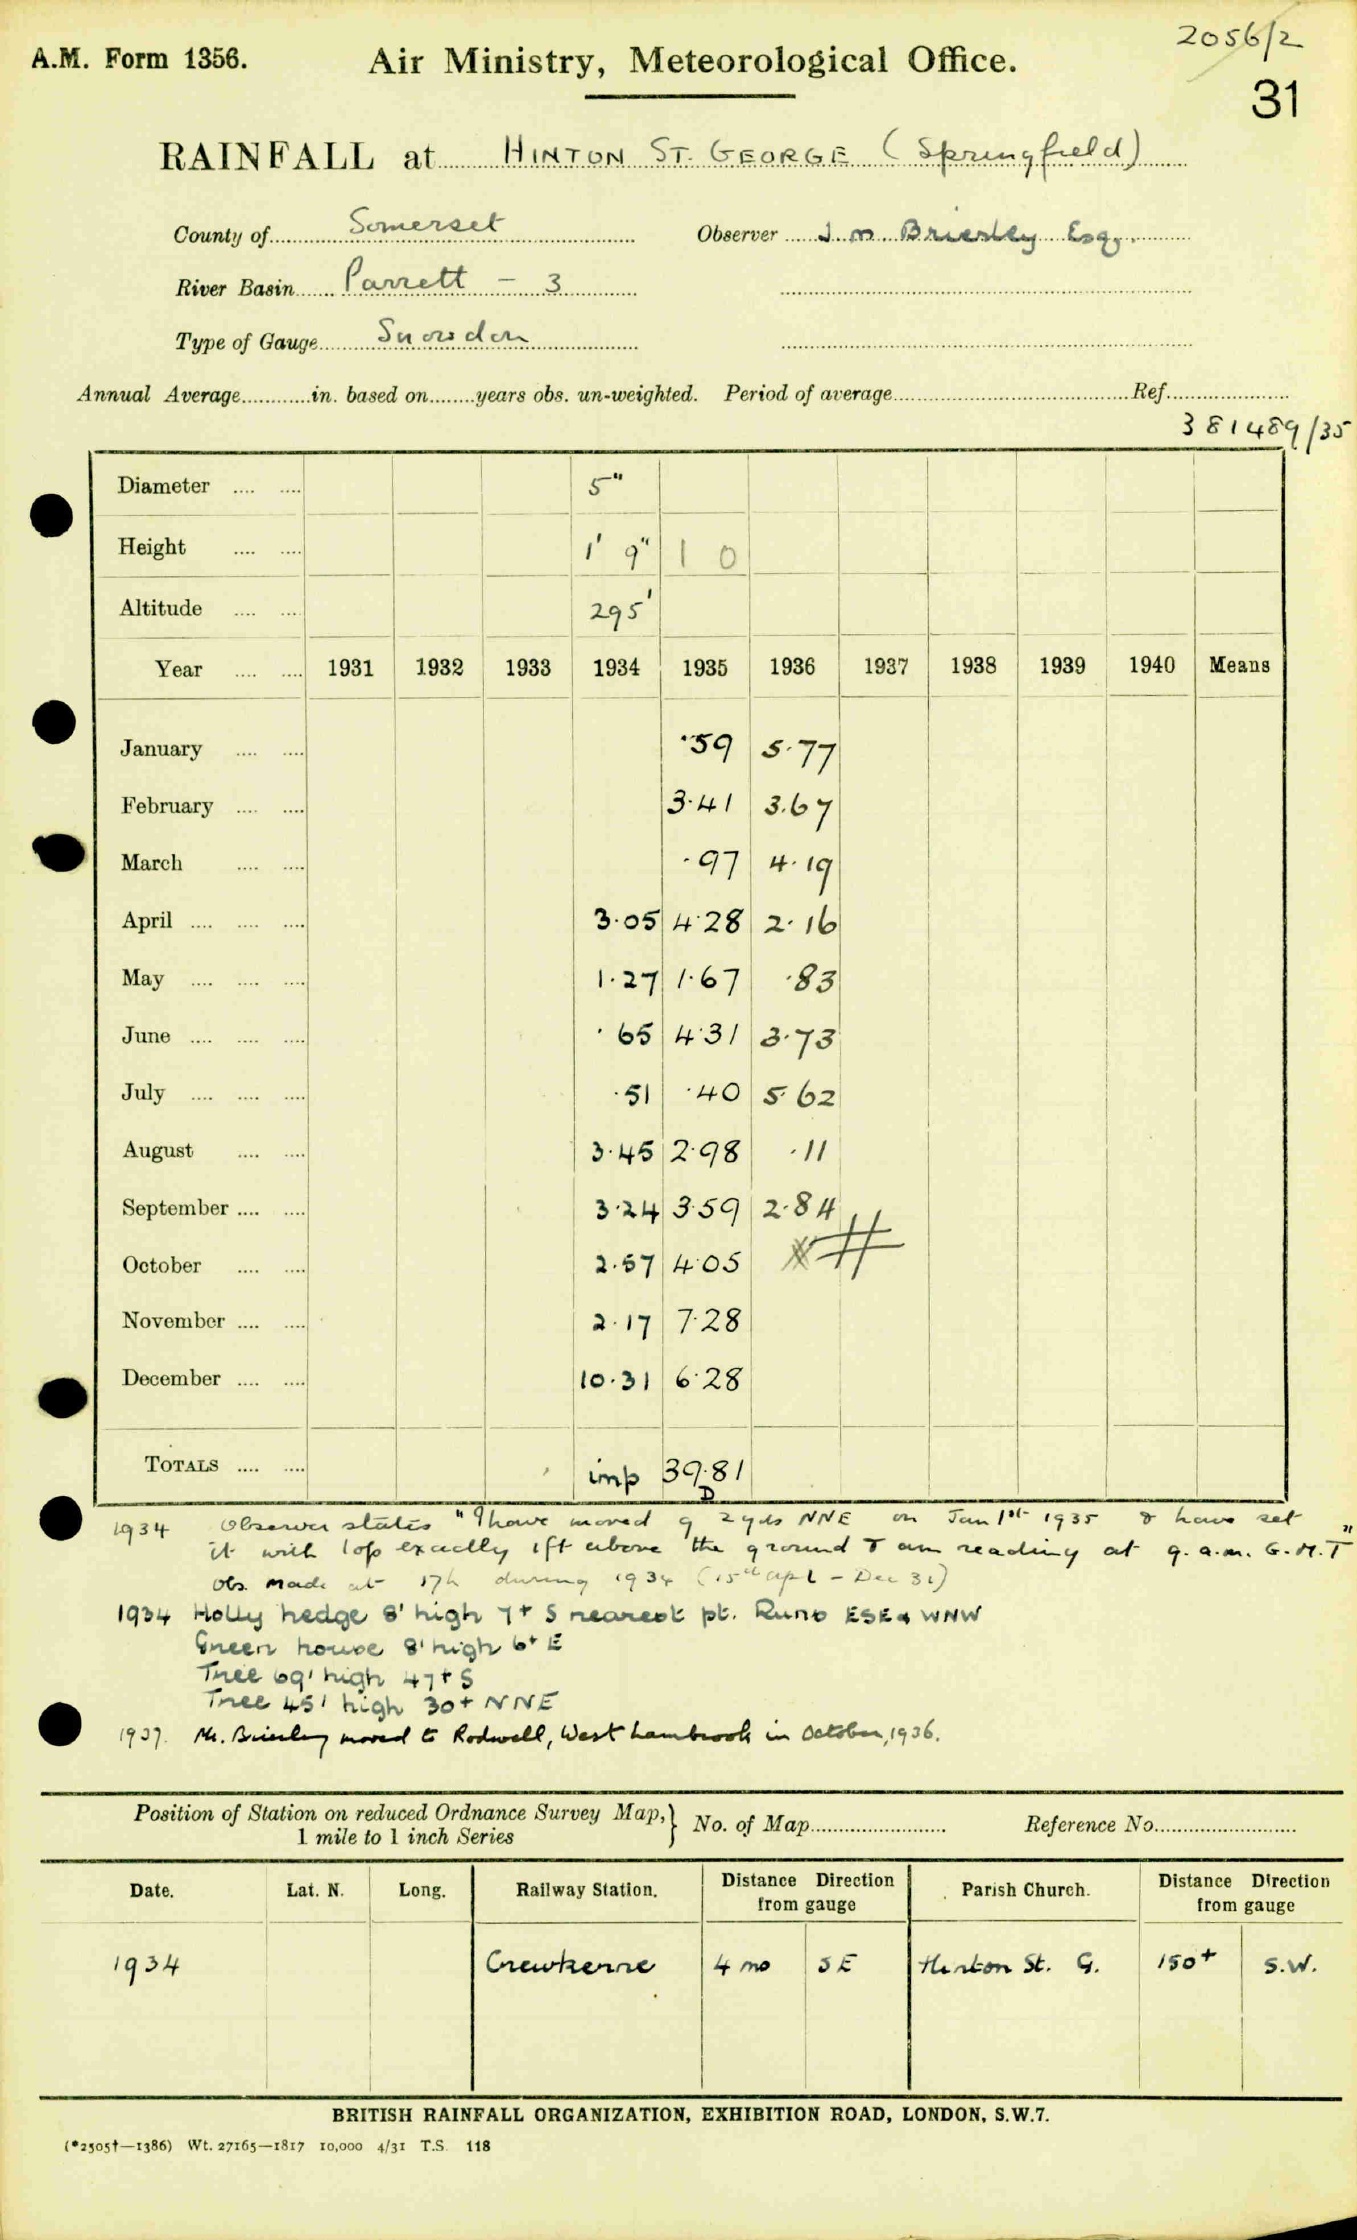 2056/2
A.M. Form 1356. Air Ministry, Meteorological Office.
31
RAINFALL at HINTON ST. GEORGE (Springfield)
County of Somerset Observer J. M. Brierley Esq.
River Basin Parrett - 3
Type of Gauge Snowdon
Annual Average in. based on years obs. un-weighted. Period of average Ref.
381489/35
Diameter 5"
Height 1' 9" 1 0
Altitude 295'
Year 1931 1932 1933 1934 1935 1936 1937 1938 1939 1940 Means
January ·59 5·77
February 3·41 3·67
March ·97 4·19
April 3·05 4·28 2·16
May 1·27 1·67 ·83
June ·65 4·31 3·73
July ·51 ·40 5·62
August 3·45 2·98 ·11
September 3·24 3·59 2·84
October 2·57 4·05
November 2·17 7·28
December 10·31 6·28
TOTALS imp 39·81
D
1934 Observer states "I have moved g 2 yds NNE on Jan 1st 1935 & have set
it with top exactly 1ft above the ground & am reading at 9. a.m. G.M.T"
Obs. made at 17h during 1934 (15th Apl - Dec 31)
1934 Holly hedge 8' high 7+ S nearest pt. Runs ESE & WNW
Green house 8' high 6+ E
Tree 69' high 47+ S
Tree 45' high 30+ NNE
1937. Mr. Brierley moved to Rodwell, West Lambrook in October, 1936.
Position of Station on reduced Ordnance Survey Map,} No. of Map Reference No.
1 mile to 1 inch Series
Date. Lat. N. Long. Railway Station. Distance Direction from gauge Parish Church. Distance Direction from gauge
1934 Crewkerne 4 ms SE Hinton St. G. 150+ S.W.
BRITISH RAINFALL ORGANIZATION, EXHIBITION ROAD, LONDON, S.W.7.
(*2505†—1386) Wt. 27165—1817 10,000 4/31 T.S. 118